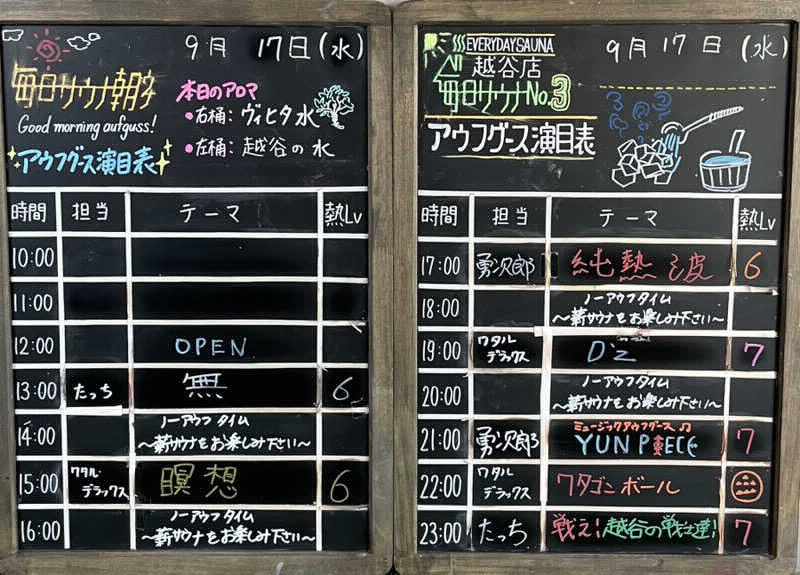 9月 17日(水)
毎日サウナ朝夕
Good morning aufguss!
アウフグース演目表
本日のアロマ
•右桶: ヴィヒタ水
•左桶: 越谷の水
時間 担当 テーマ 熱Lv
10:00
11:00
12:00 OPEN
13:00 たっち 無 6
14:00 ノーアウフタイム
〜薪サウナをお楽しみ下さい〜
15:00 ワタル・デラックス 瞑想 6
16:00 ノーアウフタイム
〜薪サウナをお楽しみ下さい〜
9月17日(水)
EVERYDAY SAUNA
越谷店
毎日サウナNo.3
アウフグース演目表
時間 担当 テーマ 熱Lv
17:00 勇次郎 純熱波 6
18:00 ノーアウフタイム
〜薪サウナをお楽しみ下さい〜
19:00 ワタルデラックス D'z 7
20:00 ノーアウフタイム
〜薪サウナをお楽しみ下さい〜
21:00 勇次郎 ミュージックアウフグース♫
YUN PIECE 7
22:00 ワタルデラックス ワタゴンボール
23:00 たっち 戦え!越谷の戦士達! 7